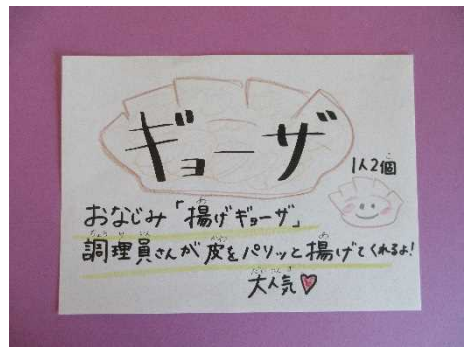 ギョーザ
1人2個
おなじみ「揚げギョーザ」
調理員さんが皮をパリッと揚げてくれるよ!
大人気♥